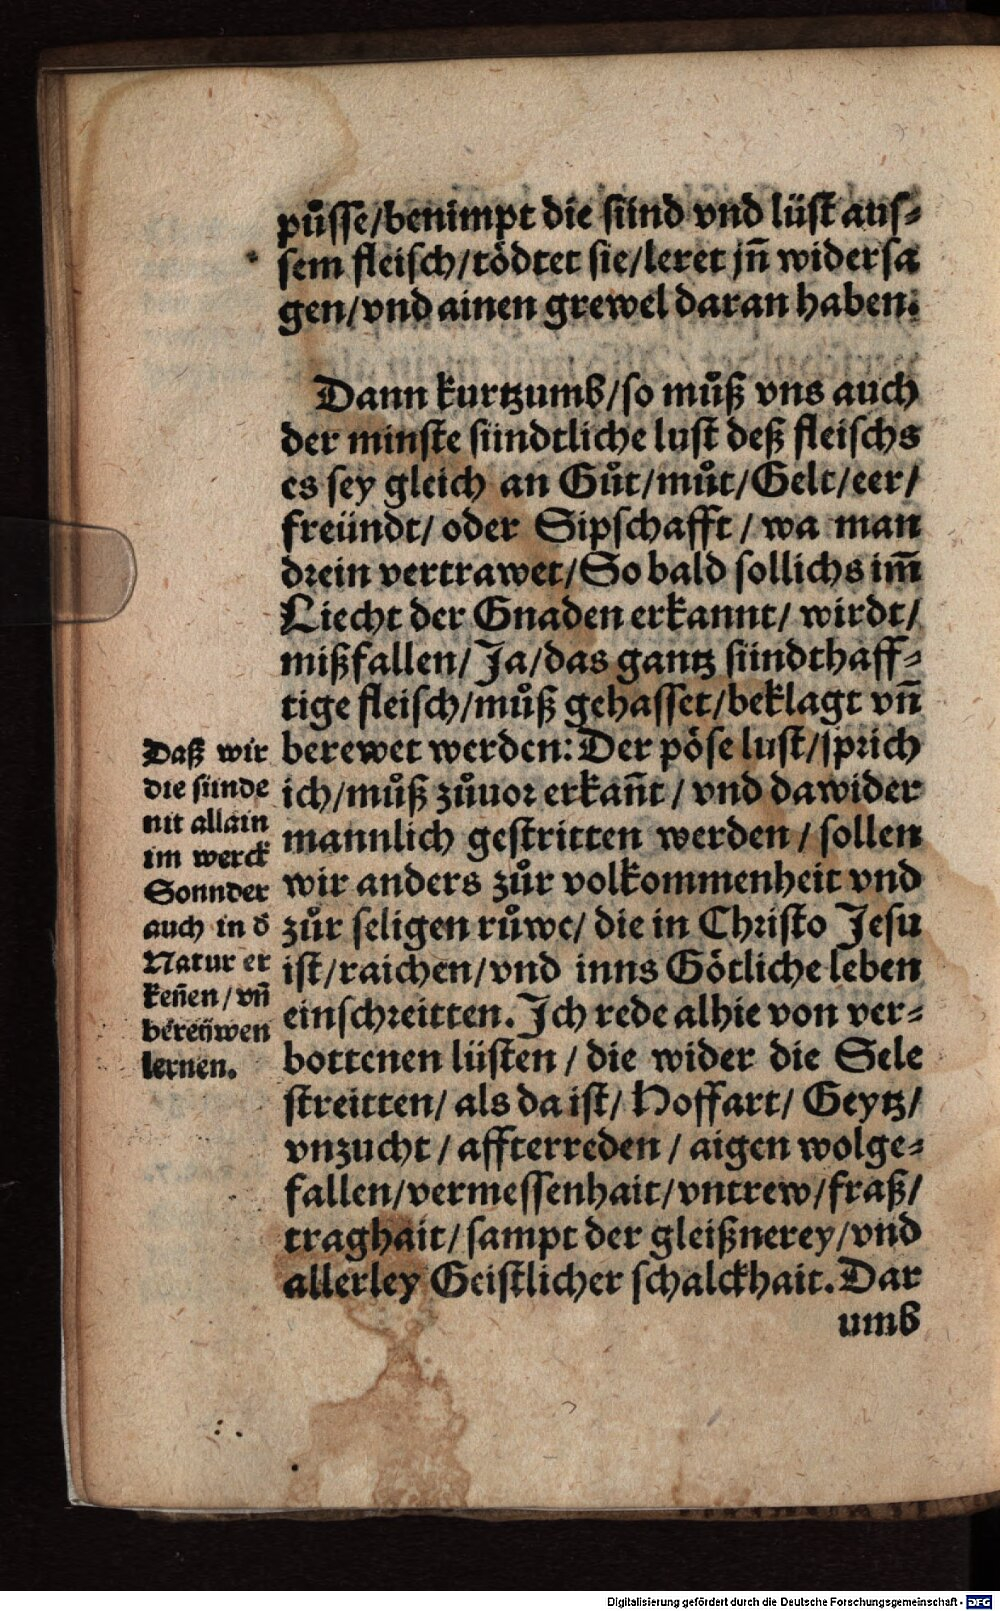 půsse/benimpt die sünd vnd lüst aus⸗
sem fleisch/tödtet sie/leret jn̄ widersa
gen/vnd ainen grewel daran haben.
Dann kurtzumb/so můß vns auch
der minste sündtliche lust deß fleischs
es sey gleich an Gůt/můt/Gelt/eer/
freündt/ oder Sipschafft / wa man
drein vertrawet/So bald sollichs im̄
Liecht der Gnaden erkannt/ wirdt/
mißfallen/ Ja/das gantz sündthaff⸗
tige fleisch/můß gehasset/beklagt vn̄
berewet werden: Der pöse lust/sprich
ich/můß zůuor erkan̄t / vnd dawider
mannlich gestritten werden / sollen
wir anders zůr volkommenheit vnd
zůr seligen růwe/ die in Christo Jesu
ist/raichen/vnd inns Götliche leben
einschreitten. Ich rede alhie von ver⸗
bottenen lüsten / die wider die Sele
streitten/ als da ist/ Hoffart/ Geytz/
vnzucht / affterreden / aigen wolge⸗
fallen/vermessenhait/vntrew/fraß/
traghait/ sampt der gleißnerey/vnd
allerley Geistlicher schalckhait. Dar
umb
Daß wir
die sünde
nit allain
im werck
Sonnder
auch in d̄
Natur er
ken̄en / vn̄
bereüwen
lernen.
Digitalisierung gefördert durch die Deutsche Forschungsgemeinschaft - DFG